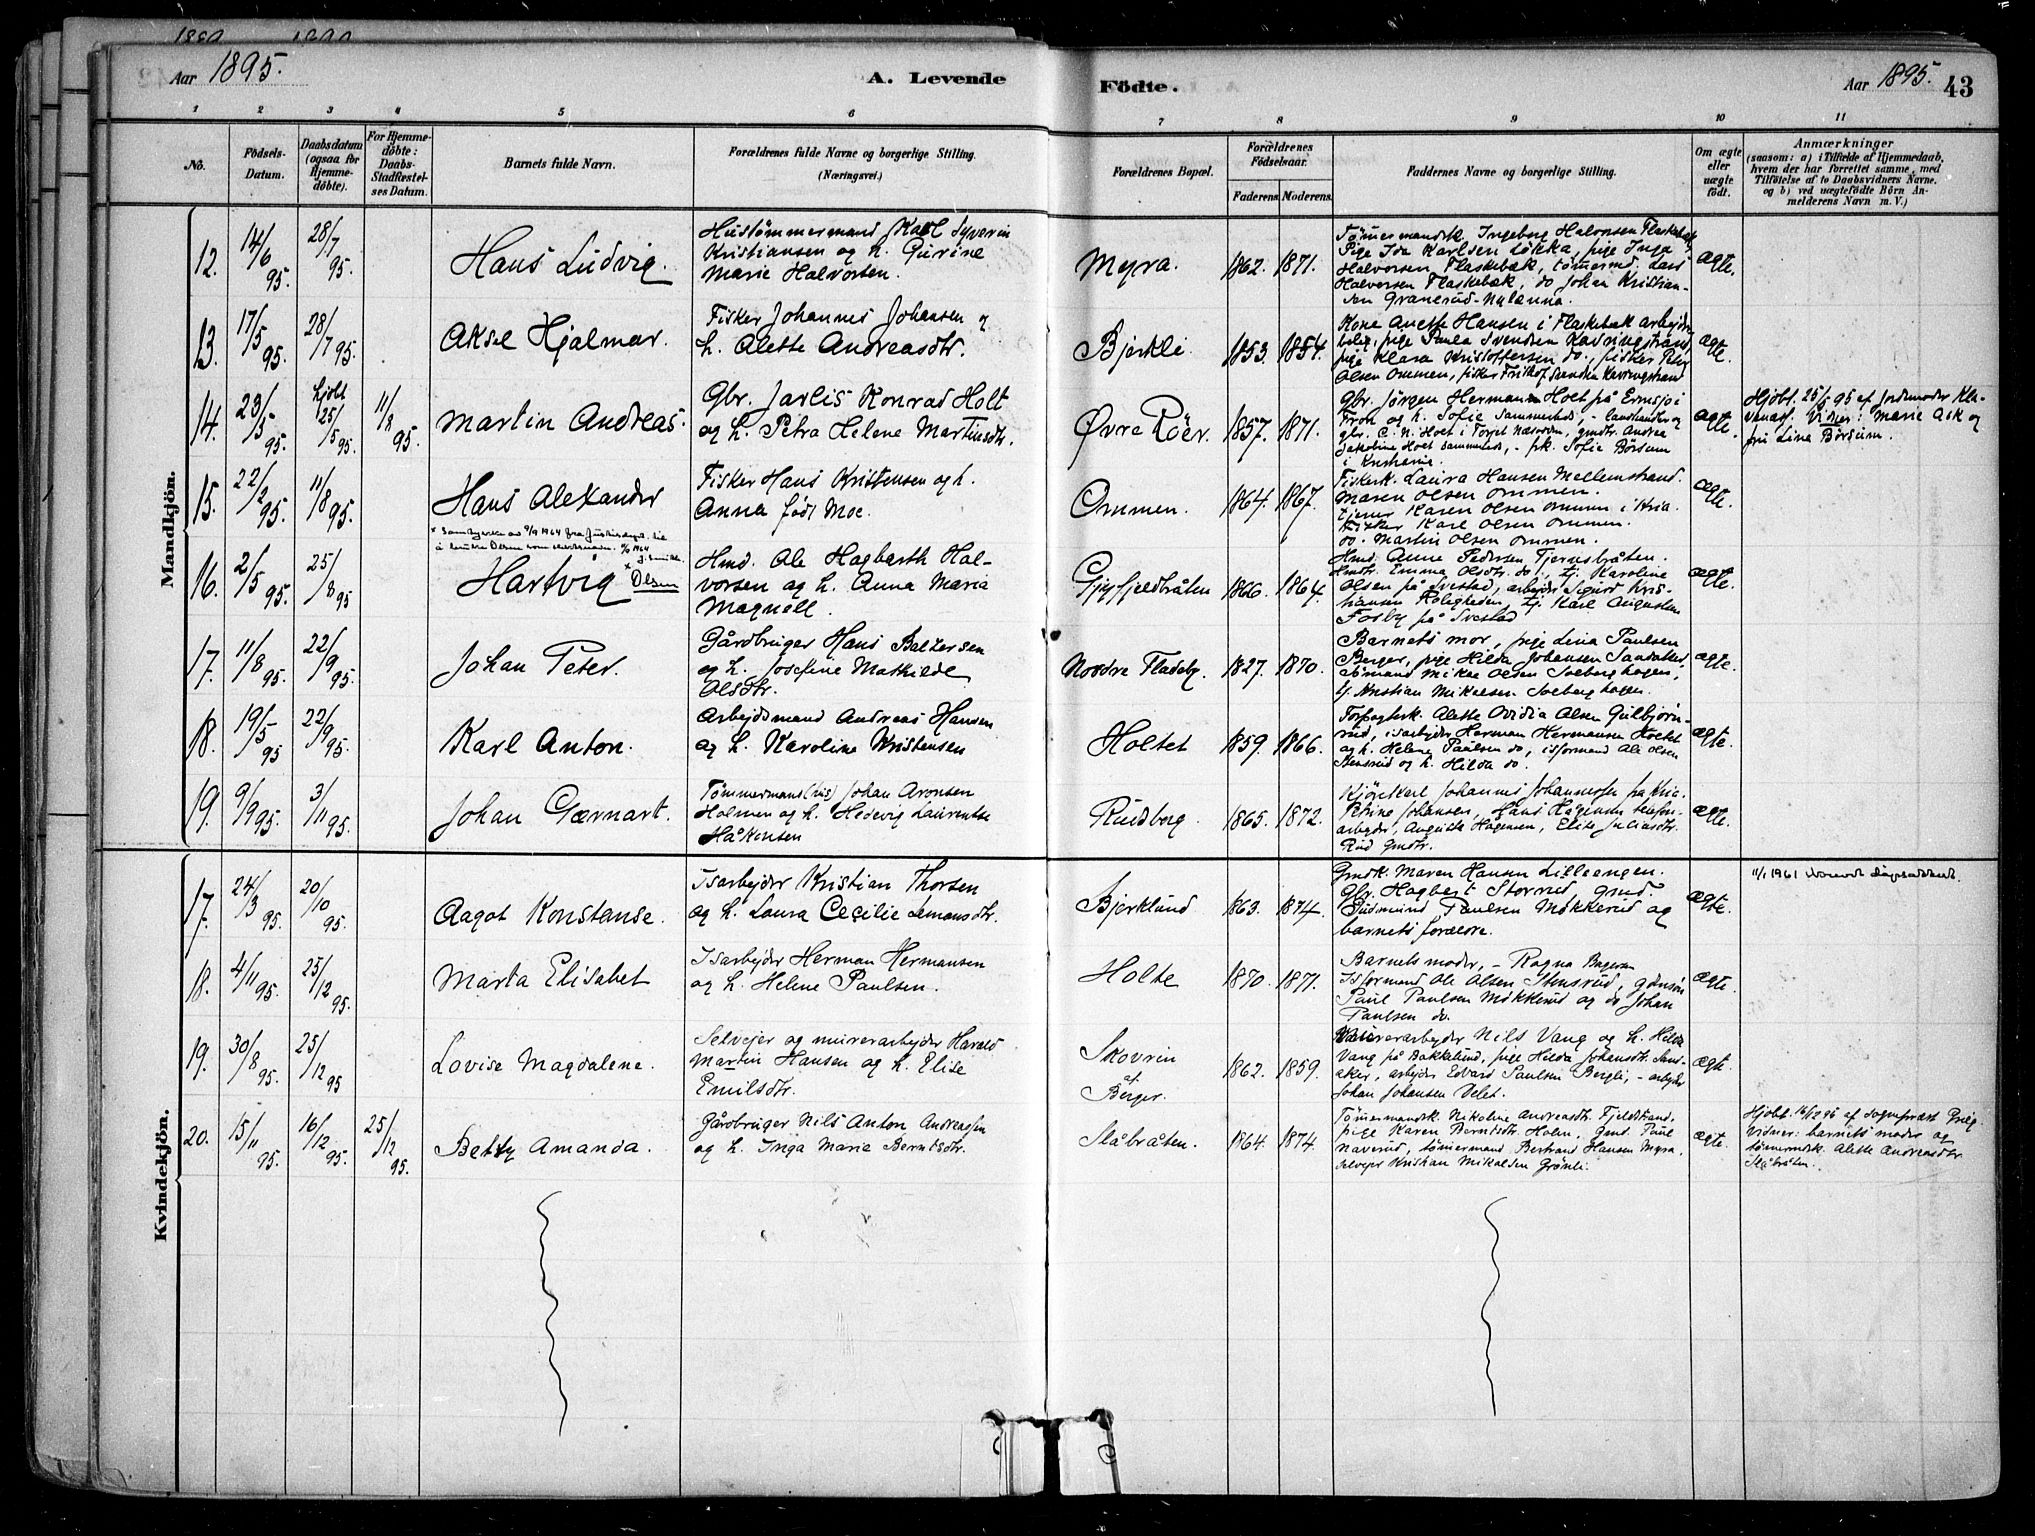 Aar 1895.
A. Levende
Födte.
Aar 1895.
43
1 2 3 4 5 6 7 8 9 10 11
No.
Födsels-
Datum.
Daabsdatum
(ogsaa for
Hjemme-
döbte).
For Hjemme-
döbte:
Daabs-
Stadfestel-
ses Datum.
Barnets fulde Navn.
Forældrenes fulde Navne og borgerlige Stilling.
(Næringsvei.)
Forældrenes Bopæl.
Forældrenes
Födselsaar.
Faderens. Moderens.
Faddernes Navne og borgerlige Stilling.
Om ægte
eller
uægte
födt.
Anmærkninger
(saasom: a) i Tilfælde af Hjemmedaab,
hvem der har forrettet samme, med
Tilföielse af to Daabsvidners Navne,
og b) ved uægtefödte Börn An-
melderens Navn m. V.)
Mandkjön.
12. 14/6 95. 28/7 95.
Hans Ludvig.
Hustömmermand Karl Syverin
Kristiansen og h. Gurine
Marie Halvorsen.
Myra. 1862. 1871.
Tömermandsk. Ingeborg Halvorsen Flaskebæk
Pige Ida Karlsen Lökka, pige Inga
Halvorsen Flaskebæk, tömermd. Lars
Halvorsen Flaskebæk, do Johan Kristian-
sen Granerud-Nylænna.
ægte.
13. 17/5 95. 28/7 95.
Aksel Hjalmar.
Fisker Johannes Johansen og
h. Alette Andreasdtr.
Bjerkli 1853. 1854.
Kone Anette Hansen i Flaskebæk arbeider
bolig, pige Paula Svendsen Kavringstrand
pige Klara Kristoffersen do., fisker Peder
Olsen Ommen, fisker Frithof Svendsen Kavringstrand
ægte.
14. 23/5 95. hjdbt 25/5 95. 11/8 95.
Martin Andreas.
Gbr. Jarlis Konrad Holt
og h. Petra Helene Martinsdtr.
Øvre Röer. 1857. 1871.
Gbr. Jörgen Hermann Hoet på Ernsjö i
Tron og h. Sofie sammesteds, - landhandler og
gbr. C. N. Hoet i Torvet Næsodden, gmdtr. Andrea
Jakobine Hoet sammesteds, - frk. Sofie Börsum
i Kristiania.
ægte.
Hjdbt. 25/5 95 af Jordemoder Kla-
Vidner: Marie Ask og
fru Lina Börsum.
15. 22/2 95. 11/8 95.
Hans Alexander
Fisker Hans Kristensen og h.
Anna född Moe.
Ommen. 1864. 1867.
Fiskerk. Laura Hansen Mellemstrand.
Maren Olsen Ommen.
tjener Karen Olsen Ommen i Kria
Fisker Karl Olsen Ommen.
do. Martin Olsen Ommen.
ægte.
16. 2/5 95. 25/8 95
Hartvig × Olsen
Hmd. Ole Hagbarth Hal-
vorsen og h. Anna Maria
Magnell.
Gjøfjeldbråten 1866. 1864.
Hmd. Anne Pedersen Tjernsbråten.
Hmdtr. Emma Olsdtr. do., tj. Karoline
Olsen på Svestad, arbejder Sigurd Kris-
tiansen Roligheden, tj. Karl Augustin
Fosby på Svestad
ægte.
17. 11/8 95. 22/9 95.
Johan Peter.
Gårdbruger Hans Baltersen
og h. Josefine Mathilde
Olsdtr.
Nordre Fladeby. 1827. 1870.
Barnets mor, pige Lina Paulsen
Berger, pige Hilda Johansen Sandaker,
sömand Mikal Olsen Solberghagen,
tj. Kristian Mikalsen Solberghagen.
ægte.
18. 19/5 95 22/9 95.
Karl Anton.
Arbejdsmand Andreas Hansen
og h. Karoline Kristensen
Holtet 1859. 1866.
Forpagterk. Alette Ovidia Olsen Gulbjörn-
rud, isarbejder Herman Hermansen Holtet
og h. Helene Paulsen do, isformand Ole Olsen
Stensrud og h. Hilda do.
ægte.
19. 9/9 95. 3/11 95.
Johan Gernart.
Tömmermand (hus) Johan Aronsen
Holmen og h. Hedevig Laurentse
Håkonsen
Rudborg. 1865. 1872.
Kjörekarl Johannes Johannessen fra Kria.
Petrine Johansen, Hans Hagensen telefon-
arbejder, Augusta Hagensen, Elise Juliasdtr.
Rud gmdtr.
ægte.
Kvindekjön.
17. 24/3 95. 20/10 95.
Aagot Konstanse.
Isarbejder Kristian Thorsen
og h. Laura Cecilie Lemansdtr.
Bjerklund 1863. 1874.
Gmdk. Maren Hansen Lilleengen.
Gbr. Hagbert Storrud, gmd.
Gudmund Paulsen Mökkerud og
barnets forældre.
ægte.
11/1 1961
18. 4/11 95. 25/12 95.
Marta Elisabet
Isarbejder Herman Hermansen
og h. Helene Paulsen.
Holte 1870. 1871.
Barnets moder, - Ragna
Isformand Ole Olsen Stensrud, gmdsön
Paul Paulsen Mökkerud og do Johan
Paulsen do.
ægte.
19. 30/8 95. 25/12 95
Lovise Magdalene.
Selvejer og murerarbejder Harald
Martin Hansen og h. Elise
Emilsdtr.
Skovrin
af
Berger. 1862. 1859.
Murerarbejder Nils Vang og h. Hilda
Vang på Bakkelund, pige Hilda Johansdtr. Sand-
aker, arbejder Edvard Paulsen Bergli, - arbejder
Johan Johansen Velet.
ægte.
20. 15/11 95. 16/12 95. 25/12 95.
Betty Amanda.
Gårdbruger Nils Anton Andreassen
og h. Inga Marie Berntsdtr.
Slåbråten. 1864. 1874.
Tömermandsk. Nikoline Andreasdtr. Fjeldstrand,
pige Karen Berntsdtr. Holm, Gmd. Paul
Naverud, tömermand Bertrand Hansen Myra,
selvejer Kristian Mikalsen Grönli.
ægte.
Hjdbt. 16/12 95 af sogneprest
Vidner: barnets moder og
tömermdk. Alette Andreasdtr.
Slåbråten.